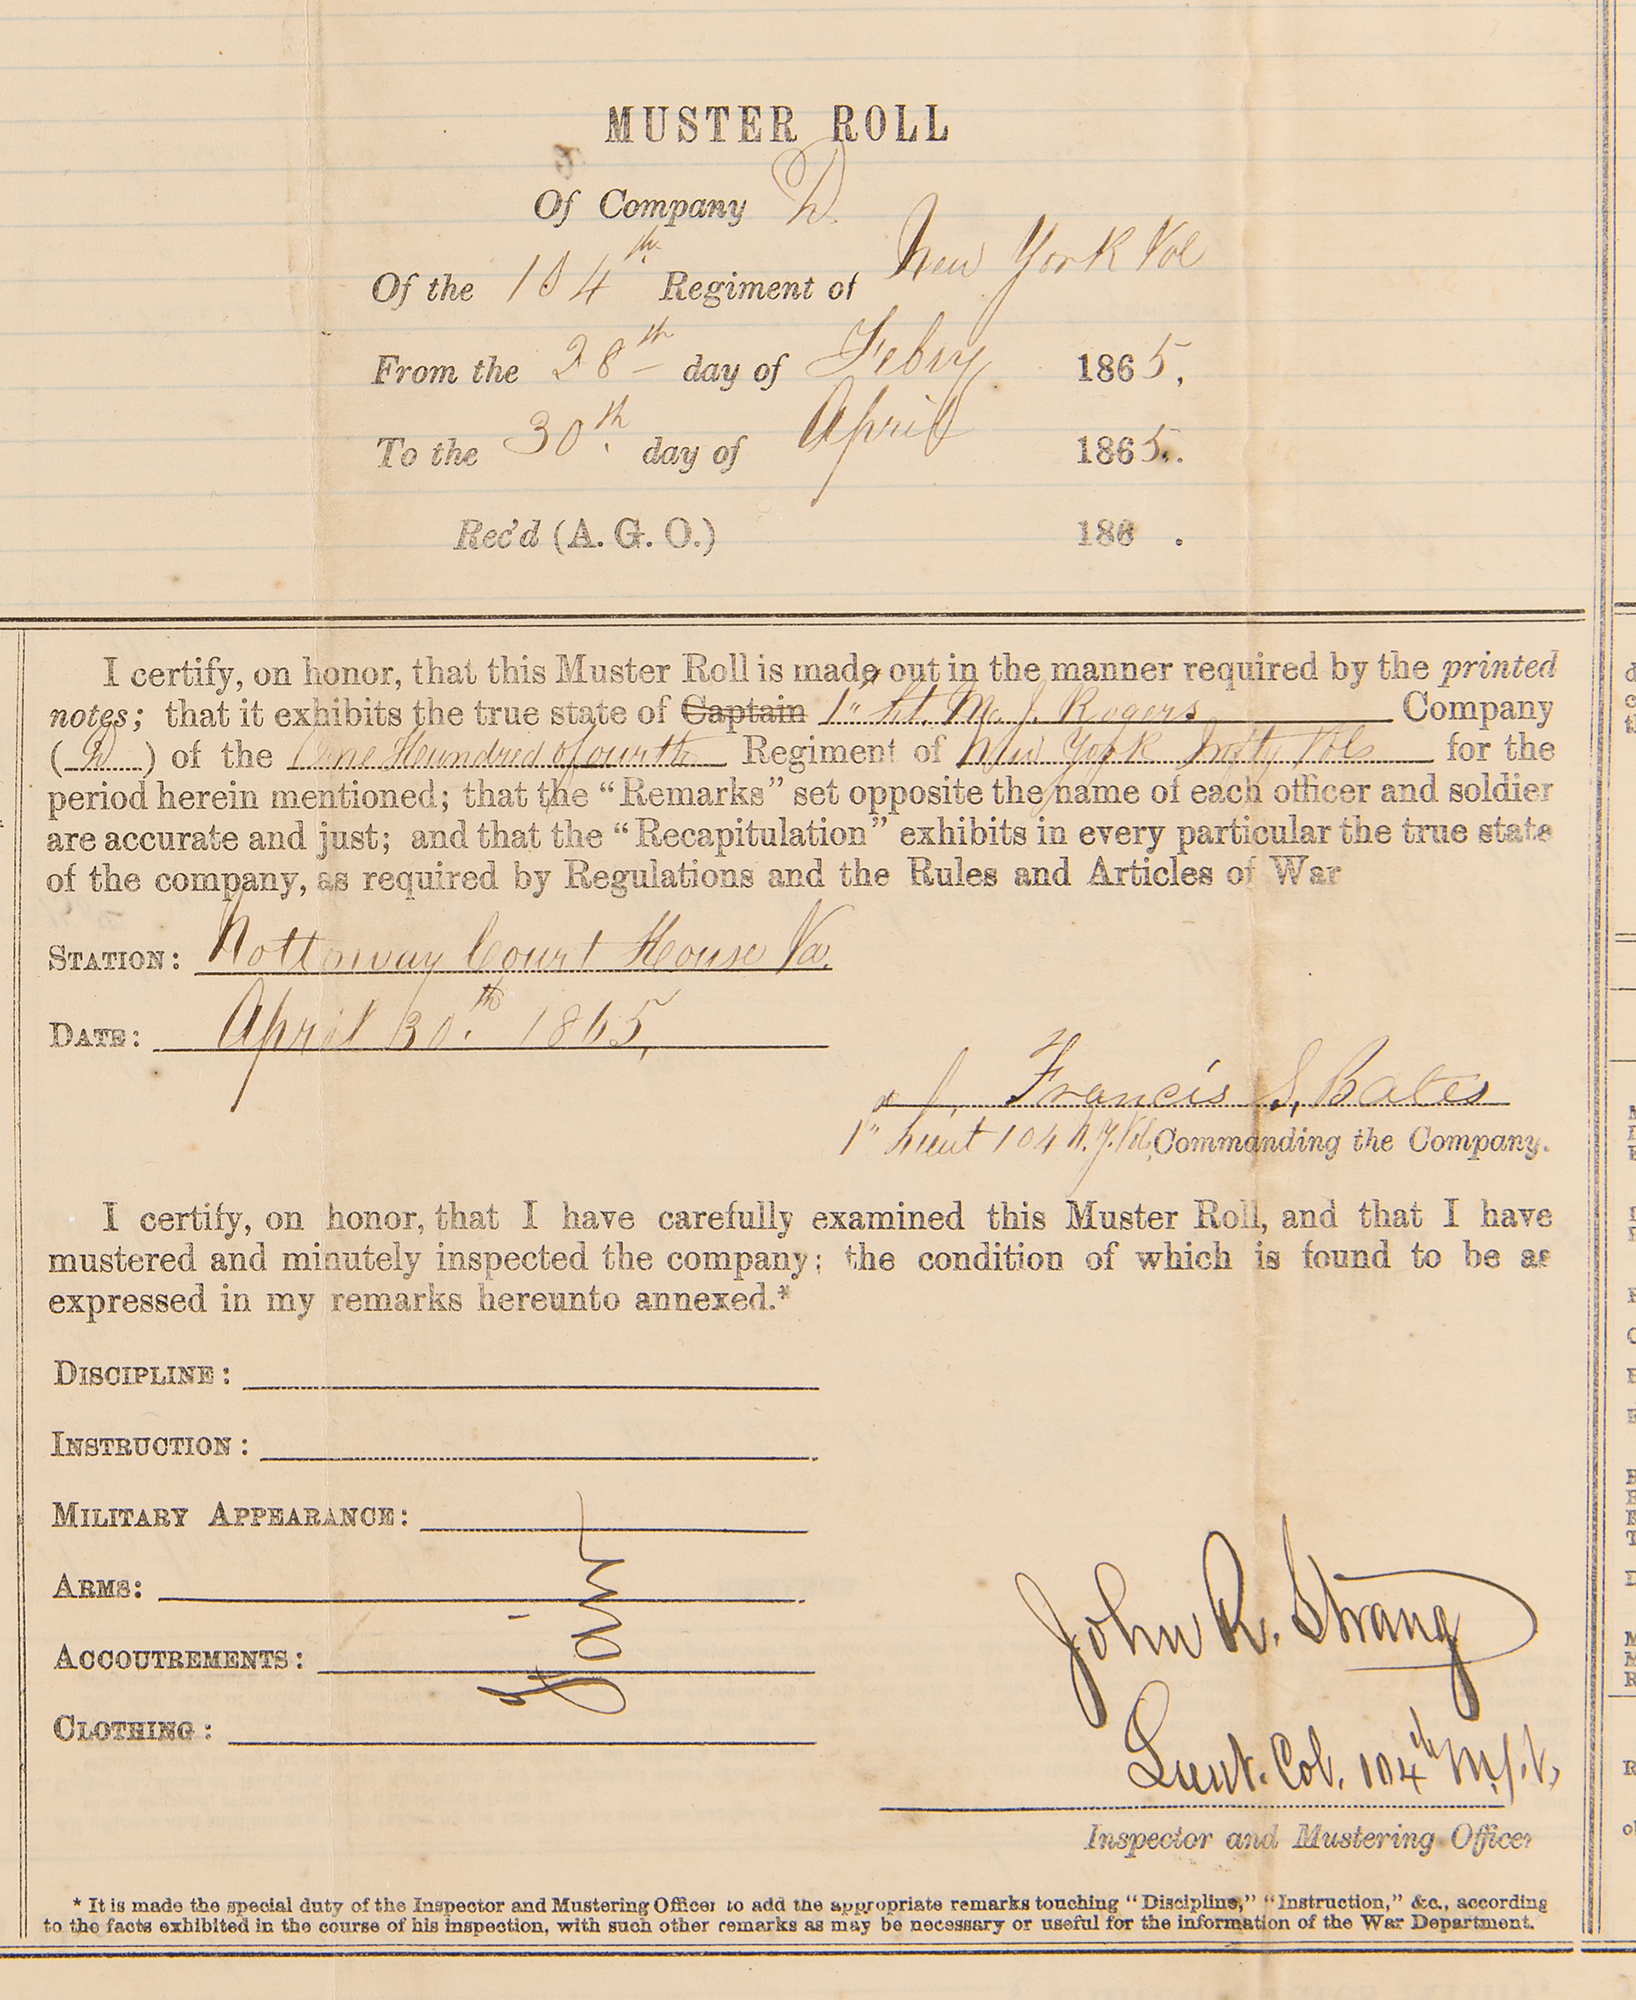 MUSTER ROLL
Of Company D.
Of the 104th Regiment of New York Vol
From the 28th day of Febry 1865,
To the 30th day of April 1865.
Rec'd (A. G. O.) 186 .
I certify, on honor, that this Muster Roll is made out in the manner required by the printed
notes; that it exhibits the true state of Captain 1st Lt. Mc J. Rogers Company
(D) of the One Hundred & fourth Regiment of New York Infty Vols for the
period herein mentioned; that the "Remarks" set opposite the name of each officer and soldier
are accurate and just; and that the "Recapitulation" exhibits in every particular the true state
of the company, as required by Regulations and the Rules and Articles of War
STATION: Nottoway Court House Va.
DATE: April 30th. 1865,
Francis S. Bates
1st Lieut 104 N.Y. Vol, Commanding the Company.
I certify, on honor, that I have carefully examined this Muster Roll, and that I have
mustered and minutely inspected the company; the condition of which is found to be as
expressed in my remarks hereunto annexed.*
DISCIPLINE:
INSTRUCTION:
MILITARY APPEARANCE:
ARMS:
ACCOUTREMENTS:
CLOTHING:
Fair
John R. Strang
Lieut. Col. 104th N.Y.V.,
Inspector and Mustering Officer
* It is made the special duty of the Inspector and Mustering Officer to add the appropriate remarks touching "Discipline," "Instruction," &c., according
to the facts exhibited in the course of his inspection, with such other remarks as may be necessary or useful for the information of the War Department.